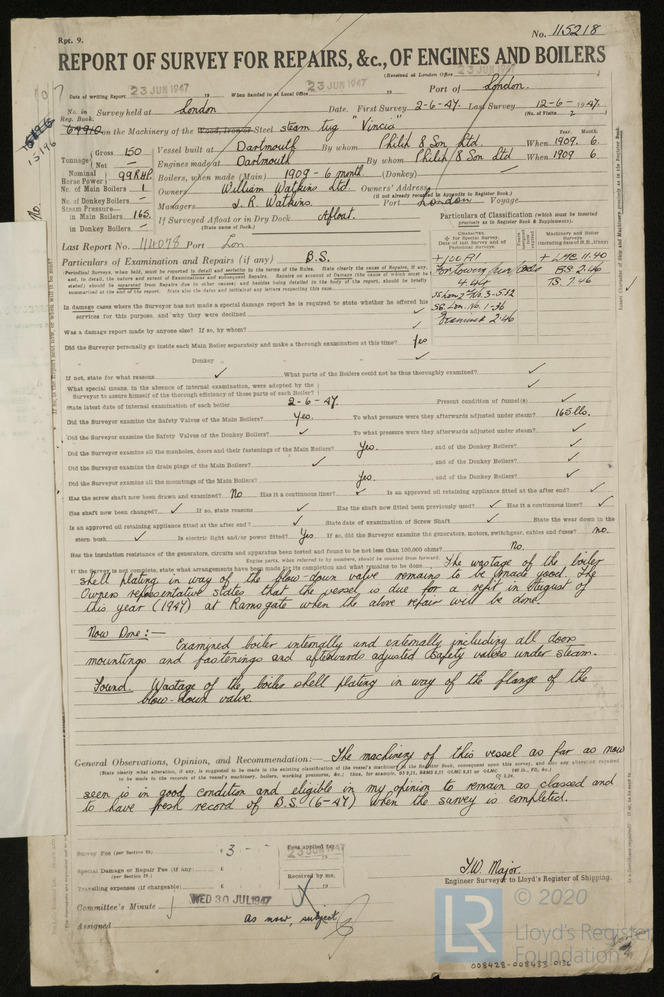 Rpt. 9.
No. 115218
REPORT OF SURVEY FOR REPAIRS, &c., OF ENGINES AND BOILERS
(Received at London Office 23 JUN 1947
Date of writing Report 23 JUN 1947 19 When handed in at Local Office 23 JUN 1947 19 Port of London.
No. in Reg. Book. Survey held at London Date. First Survey 2-6-47. Last Survey 12-6-1947.
(No. of Visits 2)
on the Machinery of the Wood, Iron or Steel steam tug "Vincia"
13196
Year. Month.
Tonnage Gross 150 Vessel built at Dartmouth By whom Philip & Son Ltd. When 1909. 6.
Net Engines made at Dartmouth By whom Philip & Son Ltd When 1909 6.
Nominal Horse Power 99 RHP. Boilers, when made (Main) 1909 - 6 month (Donkey)
No. of Main Boilers 1 Owners William Watkins Ltd. Owners' Address
(if not already recorded in Appendix to Register Book.)
No. of Donkey Boilers Managers J. R. Watkins. Port London Voyage
Steam Pressure in Main Boilers 165. If Surveyed Afloat or in Dry Dock Afloat.
(State name of Dock.)
in Donkey Boilers
Particulars of Classification (which must be inserted precisely as in Register Book & Supplements).
Last Report No. 114078 Port Lon
Particulars of Examination and Repairs (if any) B.S.
+100 A1
For towing
4.44
+ LMC 11.40
BS 2.46
TS 7.46
In damage cases where the Surveyor has not made a special damage report he is required to state whether he offered his services for this purpose, and why they were declined
Was a damage report made by anyone else? If so, by whom?
Did the Surveyor personally go inside each Main Boiler separately and make a thorough examination at this time? Yes
Donkey
If not, state for what reasons What parts of the Boilers could not be thoroughly examined?
What special means, in the absence of internal examination, were adopted by the Surveyor to assure himself of the thorough efficiency of those parts of each Boiler?
State latest date of internal examination of each boiler 2-6-47. Present condition of funnel(s)
Did the Surveyor examine the Safety Valves of the Main Boilers? Yes. To what pressure were they afterwards adjusted under steam? 165 lbs.
Did the Surveyor examine the Safety Valves of the Donkey Boilers? To what pressure were they afterwards adjusted under steam?
Did the Surveyor examine all the manholes, doors and their fastenings of the Main Boilers? Yes. , and of the Donkey Boilers?
Did the Surveyor examine the drain plugs of the Main Boilers? , and of the Donkey Boilers?
Did the Surveyor examine all the mountings of the Main Boilers? Yes. , and of the Donkey Boilers?
Has the screw shaft now been drawn and examined? No Has it a continuous liner? Is an approved oil retaining appliance fitted at the after end?
Has shaft now been changed? If so, state reasons Has the shaft now fitted been previously used? Has it a continuous liner?
Is an approved oil retaining appliance fitted at the after end? State date of examination of Screw Shaft State the wear down in the
stern bush Is electric light and/or power fitted? Yes If so, did the Surveyor examine the generators, motors, switchgear, cables and fuses? no.
Has the insulation resistance of the generators, circuits and apparatus been tested and found to be not less than 100,000 ohms? No.
If the Survey is not complete, state what arrangements have been made for its completion and what remains to be done. The wastage of the boiler
shell plating in way of the blow-down valve remains to be made good. The
Owners representative states that the vessel is due for a refit in August of
this year (1947) at Ramsgate when the above repair will be done.
Now Done:- Examined boiler internally and externally including all doors
mountings and fastenings and afterwards adjusted safety valves under steam.
Found. Wastage of the boiler shell plating in way of the flange of the
blow-down valve.
General Observations, Opinion, and Recommendation:— The machinery of this vessel as far as now
seen is in good condition and eligible in my opinion to remain as classed and
to have fresh record of B.S. (6-47) when the survey is completed.
Survey Fee (per Section 29) £ 3 - Fees applied for 23 JUN 1947
Special Damage or Repair Fee (if any) (per Section 29.) £
Received by me,
Travelling expenses (if chargeable) £ 19
J.W. Major.
Engineer Surveyor to Lloyd's Register of Shipping.
Committee's Minute WED 30 JUL 1947
Assigned As now, subject
© 2020
LR
Lloyd's Register
Foundation
008428-008433-0136